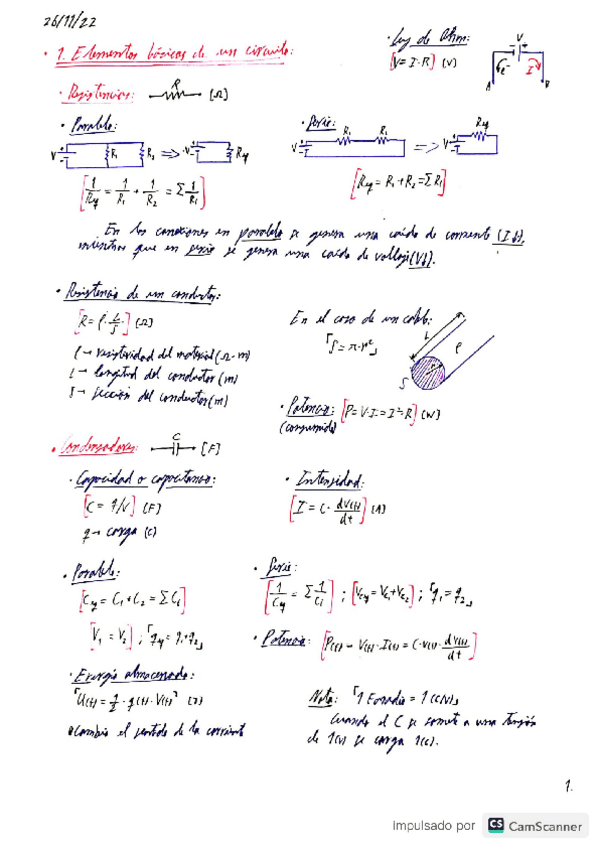 26/11/22
· 1. Elementos básicos de un circuito:
· Ley de Ohm:
[V = I·R] (V)
V
I
A
B
· Resistencias: R [Ω]
· Paralelo:
V R₁ R₂ => V Req
[1/Req = 1/R₁ + 1/R₂ = Σ 1/Ri]
· Serie:
V R₁ R₂ => V Req
[Req = R₁ + R₂ = Σ Ri]
En las conexiones en paralelo se genera una caída de corriente (I↓),
mientras que en serie se genera una caída de voltaje (V↓).
· Resistencia de un conductor:
[R = ρ · L/S] (Ω)
ρ → resistividad del material (Ω·m)
L → longitud del conductor (m)
S → sección del conductor (m)
En el caso de un cable:
「S = π·r²」
L
ρ
r
S
· Potencia: [P = V·I = I²·R] (W)
(consumida)
· Condensadores: C [F]
· Capacidad o capacitancia:
[C = q/V] (F)
q → carga (C)
· Intensidad:
[I = C · dV(t)/dt] (A)
· Paralelo:
[Ceq = C₁ + C₂ = Σ Ci]
[V₁ = V₂] ;
· Serie:
[1/Ceq = Σ 1/Ci] ; [Veq = Vc₁ + Vc₂] ; 「q₁ = q₂」
· Potencia: [P(t) = V(t)·I(t) = C·V(t)· dV(t)/dt]
· Energía almacenada:
「U(t) = 1/2 · q(t) · V(t) (J)
Cambia el sentido de la corriente
Nota: 「1 Faradio = 1 (C/V)」
Cuando el C se somete a una tensión
de 1(V) se carga 1(C).
1.
Impulsado por CS CamScanner